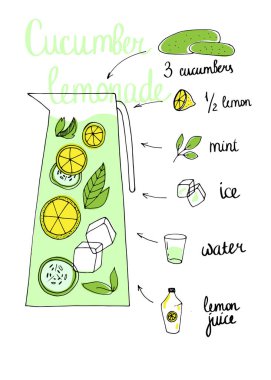 Cucumber
lemonade
3 cucumbers
1/2 lemon
mint
ice
water
lemon
juice